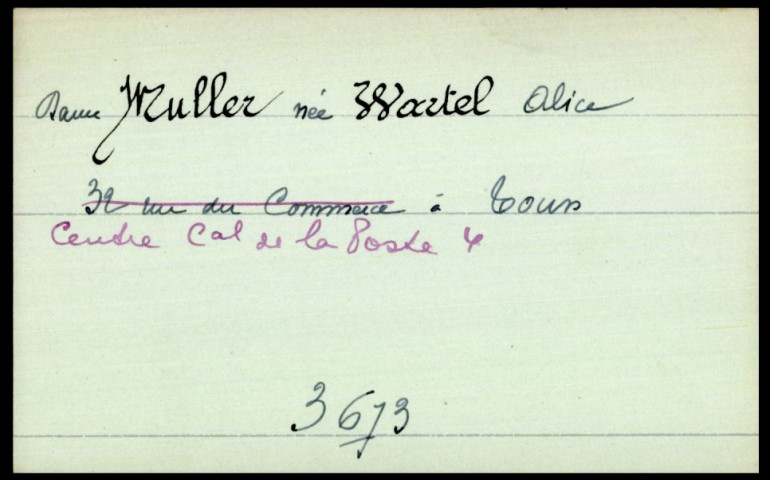 Dame Muller née Wartel Alice
32 rue du Commerce à Tours
Centre Cal de la Poste 4
3673